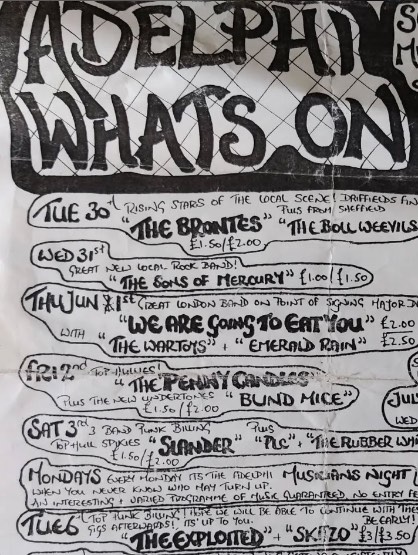 ADELPHI
WHATS ON
TUE 30th RISING STARS OF THE LOCAL SCENE! DRIFFIELDS FIN
PLUS FROM SHEFFIELD
"THE BRONTES" "THE BOLL WEEVILS
£1.50/£2.00
WED 31st
GREAT NEW LOCAL ROCK BAND!
"THE SONS OF MERCURY" £1.00/£1.50
THU JUN 1st GREAT LONDON BAND ON POINT OF SIGNING MAJOR
"WE ARE GOING TO EAT YOU" £2.00
WITH "THE WARTOYS" + "EMERALD RAIN" £2.50
FRI 2nd TOP HULLIES!
"THE PENNY CANDLES"
PLUS THE NEW UNDERTONES "BLIND MICE"
£1.50/£2.00
JUL
WED
SAT 3rd 3 BAND PUNK BILLING PLUS
TOP HULL SPIKIES "SLANDER" "PLC" + "THE RUBBER
£1.50/£2.00
MONDAYS EVERY MONDAY ITS THE ADELPHI MUSICIANS NIGHT
WHEN YOU NEVER KNOW WHO MAY TURN UP.
AN INTERESTING + VARIED PROGRAMME OF MUSIC GUARANTEED. NO ENTRY
TUE 6 TOP PUNK BILLING! WE WILL BE ABLE TO CONTINUE WITH THE
GIGS AFTERWARDS!, ITS UP TO YOU. BE EARLY!
"THE EXPLOITED" + "SKITZO" £3/£3.50